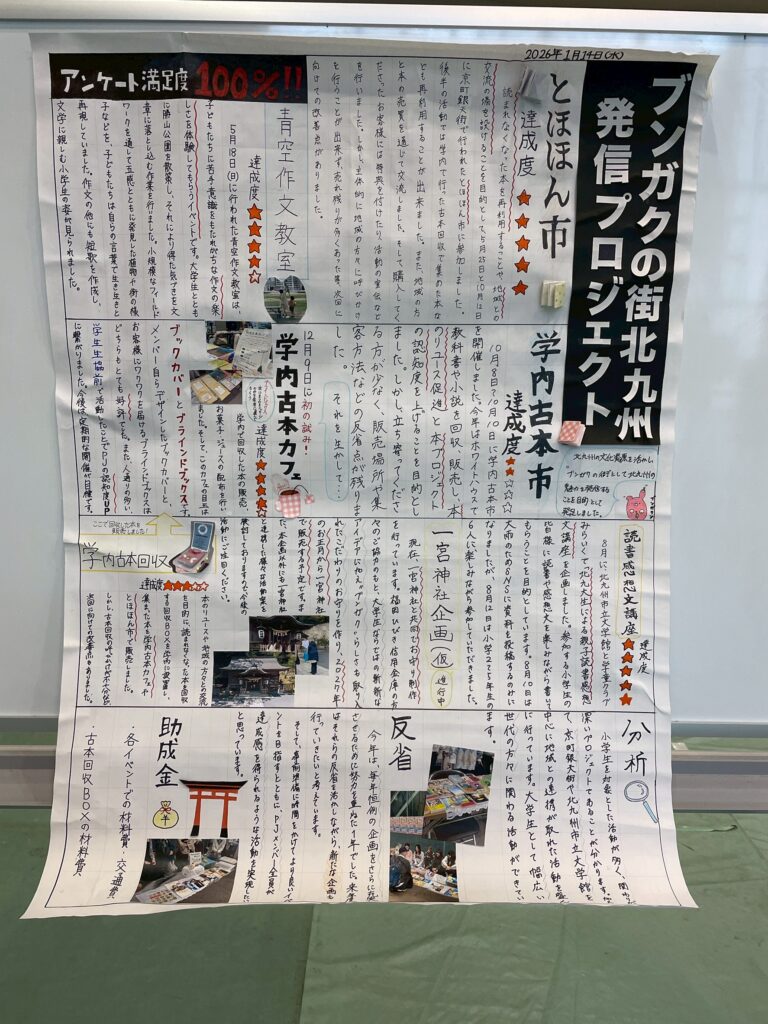 2026年1月14日(水)
ブンガクの街北九州
発信プロジェクト
北九州の文化芸術を活かし、
ブンガクの街として北九州の
魅力を発信する
ことを目的として
発足しました。
とほほん市
達成度
読まれなくなった本を再利用することや、地域との
交流の場を設けることを目的として、5月25日と10月12日
に京町銀天街で行われたとほほん市に参加しました。
後半の活動では学内で行った古本回収で集めた本な
ども再利用することが出来ました。また、地域の方
と本の売買を通じて交流しました。そして、購入してく
ださったお客様には特典を付けたり、活動の宣伝など
を行いました。しかし、主体的に地域の方々に呼びかけ
を行うことが出来ず、売れ残りが多くあった為、次回に
向けての改善点がありました。
アンケート満足度100%!!
青空作文教室
達成度
5月18日(日)に行われた青空作文教室は、
子どもたちに苦手意識をもたれがちな作文の楽
しさを体験してもらうイベントです。大学生ととも
に勝山公園を散策し、それにより得た気づきを文
章に落とし込む作業を行いました。小規模なフィールド
ワークを通して五感とともに発見した植物や街の様
子などを、子どもたちは自らの言葉で生き生きと
再現していました。作文の他にも短歌を作成し、
文学に親しむ小学生の姿が見られました。
学内古本市
達成度
10月8日と10月10日に学内古本市
を開催しました。今年はホワイトハウスで
教科書や小説を回収・販売し、本
のリユース促進と本プロジェクト
の認知度を上げることを目的とし
ました。しかし、立ち寄ってくださ
る方が少なく、販売場所や集
客方法などの反省点が残りま
した。
それを生かして…
12月9日に初の試み!
学内古本カフェ
達成度
学内で回収した本の販売、
お菓子・ジュースの配布を行い
ました。そして、このカフェの目玉は
ブックカバーとブラインドブックスです。
メンバー自らデザインしたブックカバーと、
お客様にワクワクを届けるブラインドブックスは
どちらもとても好評でした。また、人通りの多い
学生生協前で活動したことでPJの認知度UP
に繋がりました。今後は定期的な開催が目標です。
読書感想文講座
達成度
8月に、北九州市立文学館と学童クラブ
みらいくで、北九大生による親子読書感想
文講座を企画しました。参加する小学生の
皆様に読書や感想文を楽しみながら書いて
もらうことを目的としています。8月10日は
大雨のためSNSに資料を投稿するのみに
なりましたが、8月12日は小学2〜5年生の
6人に楽しみながら参加していただきました。
一宮神社企画(仮)
進行中
現在、一宮神社と共同でお守り制作
を行っています。福田ひびき信用金庫の方
々のご協力のもと、大学生ならではの斬新な
アイデアに加え、ブンガクらしさも取り入
れたこだわりのお守りを作り、2027年
のお正月から一宮神社
で販売する予定です。ま
た、本企画以外にも一宮神社
と連携した様々な活動案を
検討しておりますので、今後の
活動にご注目ください。
ここで回収した本を
販売しました!
学内古本回収
達成度
本のリユースや地域の方々との交流
を目的に、読まれなくなった本を回収
する回収BOXを学内に設置し、
集まった本を学内古本カフェや
とほほん市で販売しました。
しかし、古本回収の呼びかけが不十分な為、
次回に向けての改善点がありました。
分析
小学生を対象とした活動が多く、
深いプロジェクトであることが分かります。
て、京町銀天街や北九州市立文学館を
中心に地域との連携が取れた活動を
に行っています。大学生として幅広い
世代の方々に関わる活動ができてい
ます。
反省
今年は、毎年恒例の企画をさらに
させるために努力を重ねた1年でした。来年
はそれらの反省を活かしながら、新たな企画も
行っていきたいと考えています。
そして、事前準備に時間をかけてより良いイベ
ントを目指すとともに、PJメンバー全員が
達成感を得られるような活動を実現したい
と思っています。
助成金
・各イベントでの材料費・交通費
・古本回収BOXの材料費